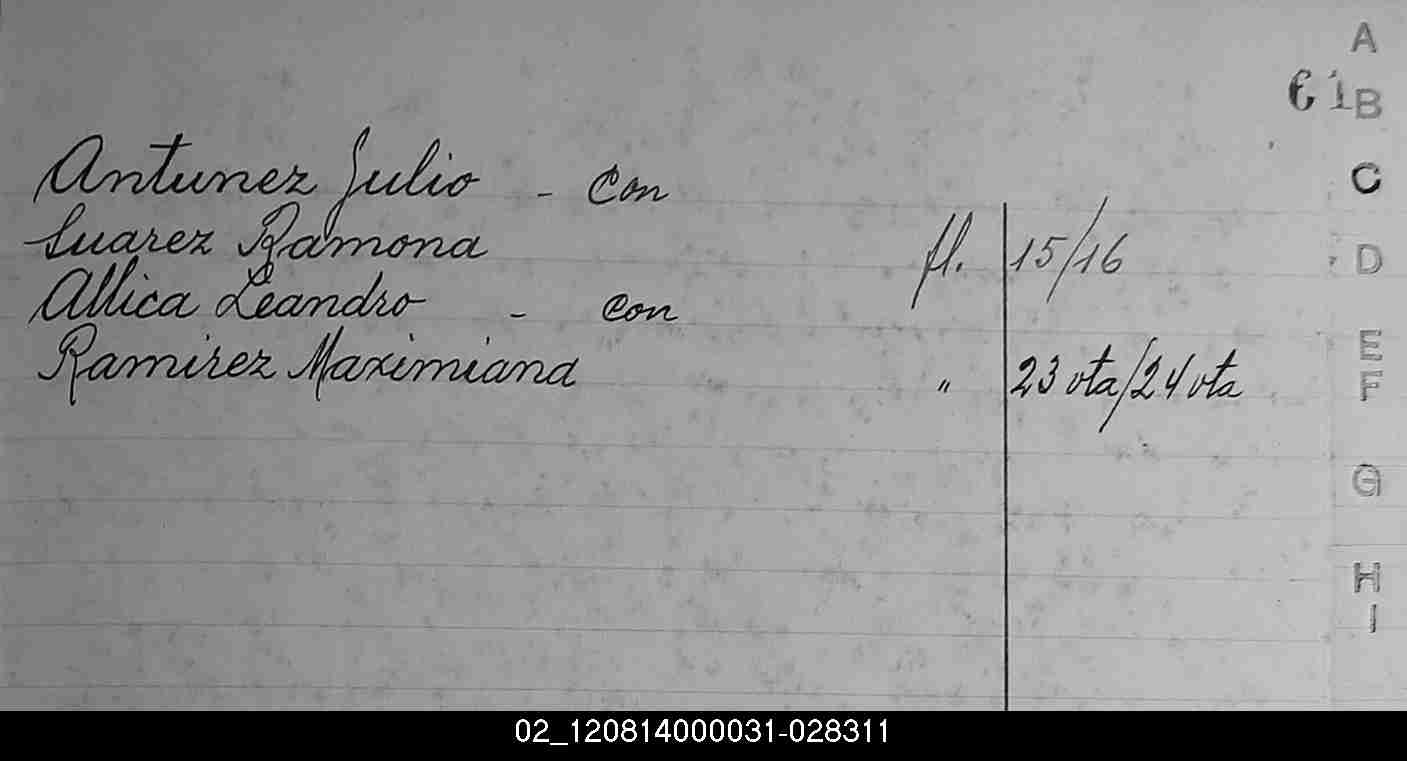 A
61 B
C
Antunez Julio - Con
Suarez Ramona fl. 15/16
D
Allica Leandro - con
Ramirez Maximiana " 23 vta/24 vta
E
F
G
H
I
02_120814000031-028311